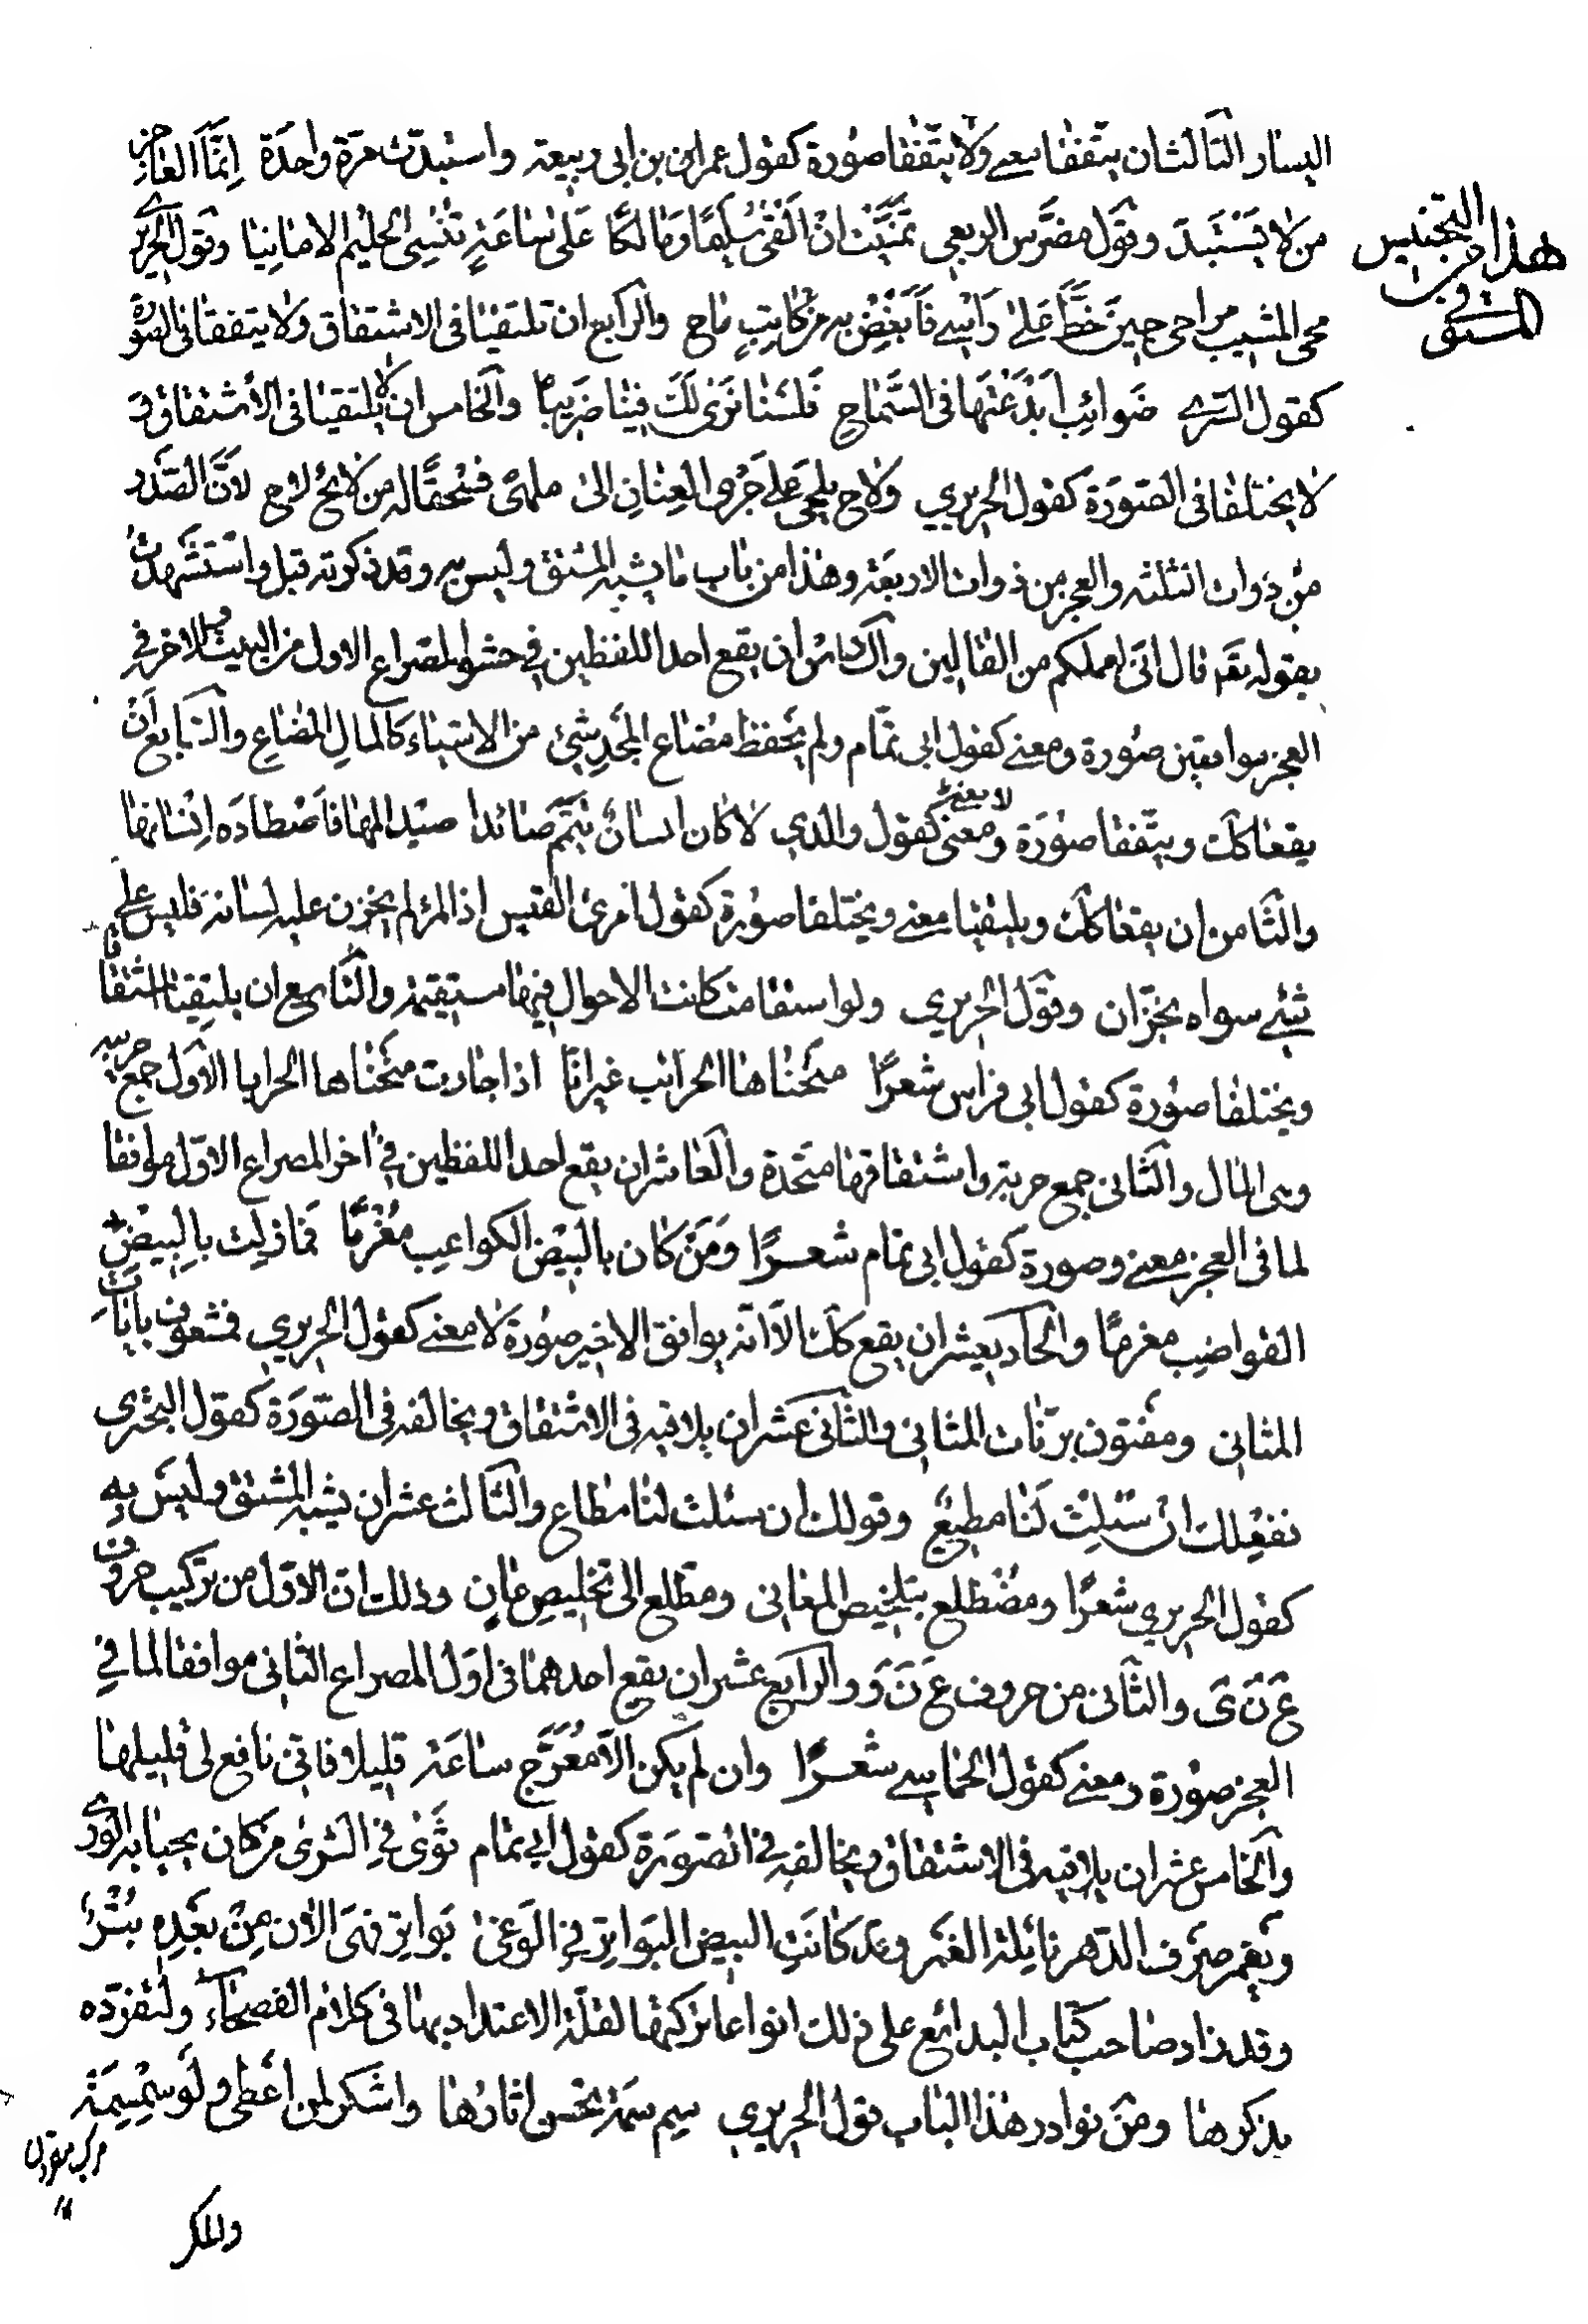 اليسار الثالث ان يتفقا معنى ولا يتفقا صورة كقول عمر بن ابى ربيعة واستبدت مرة واحدة اِنَّمَا العَاجِز
من لا يَسْتَبِدّ وقول مضَرَّس الربعي تَمَنَّيْت اَنْ اَلْقَى سُلَيمًا وَمَالكًا عَلَى سَاعَةٍ تُنْسِى الحليم الامانيا وقول الحريري
هذا التجنيس
من
المشتق
محى المشيب مراحى حِينَ خَطَّ عَلىٰ رَأسى فَاَبْغِضْ به من كَاتِبٍ ماح والرابع ان يلتقيا فى الاشتقاق ولا يتفقا فى الصورة
كقول السرى ضَرائِبُ اَبْدَعْتَهَا فى السَّمَاحِ فَلَسْنا نَرىٰ لَكَ فِينَا ضَرِيبًا والخامس ان لا يلتقيا فى الاشتقاق و
لا يختلفا فى الصورة كقول الحريري ولاح يلحى عَلىٰ جَرْى العِنَانِ الىٰ ملهىً فسُحقًا له من لائح لاح لانَّ الصَّدر
من ذوات الثلثه والعجز من ذوات الاربعة وهذا من باب ما يشبه المشتق وليس به وقد ذكرته قبل واستَشْهدتُ
بقوله تع قال انى لعملكم من القالين والسادس ان يقع احد اللفظين في حشو المصراع الاول من البيت والاخر في
العجز موافقين صورة ومعنى كقول ابى تمام ولم يحفظ مضاع المجدِ شئ من الاشياء كالمال المضاعِ والسابع أن
يقعا كك ويتفقا صورة لا معنى كقول والدي لا كان انسان تيمّم صائدا صيد المها فاصطاده اِنسانها
والثامن ان يقعا كك ويلتقيا معنى ويختلفا صورة كقول امرئ القيس اذا المرء لم يخزن عليه لسانه فليس على
شئ سواه بخزّان وقول الحريري ولو استقامت كانت الاحوال فيها مستقيمة والتاسع ان يلتقيا اشتقاقا
ويختلفا صورة كقول ابى فراس شعرًا منحناها الحرائب غير انّا اذا جارت منحناها الحرابا الاول جمع حريبة
وهى المال والثانى جمع حربة واشتقاقهما متحدة والعاشر ان يقع احد اللفظين في اخر المصراع الاول موافقا
لما فى العجز معنى وصورة كقول ابى تمام شعرًا وَمَنْ كان بالبيض الكواعب مُغْرَمًا فما زلت بالبيضِ
القواضِب مغرمًا والحاديعشر ان يقع كك الا انه يوافق الاخير صورة لا معنى كقول الحريري فمشعوف باياتِ
المثانى ومفتون برنات المثانى والثانى عشر ان يلاقيه فى الاشتقاق ويخالفه فى الصورة كقول البحترى
نفعلك ان سُئِلت لَنا مطيعٌ وقولك ان سئلت لنا مطاع والثالث عشر ان يشبه المشتق وليس به
كقول الحريري شعرًا ومضطلع بتلخيص المعانى ومطلع الى تخليصِ عانٍ وذلك ان الاول من تركيب حروف
عَ نَ ىَ والثانى من حروف عَ نَ وَ والرابع عشر ان يقع احدهما فى اول المصراع الثانى موافقا لما في
العجز صورة ومعنى كقول الحماسى شعرًا وان لم يكن الا مُعَرَّج ساعة قليلا فانى نافع لى قليلها
والخامس عشر ان يلاقيه فى الاشتقاق ويخالفه فى الصورة كقول ابي تمام ثَوَىٰ في الثَّرىٰ من كان يحيا به الورىٰ
ويَغمر صرف الدهر نائله الغمر وقد كَانَتِ البيض البَوَاتِر في الوَغىٰ بَواتِر فهىَ الان مِنْ بَعْدِه بُتْرُ
وقد زاد صاحب كتاب البدائع على ذلك انواعا تركتها لقلة الاعتداد بها فى كلام الفصحاء ولتفرّده
بذكرها ومن نوادر هذا الباب قول الحريري سِم سِمَةً تحسن اثارُها واشكر لمن اعْطى ولَو سِمْسِمَهْ
والمكر